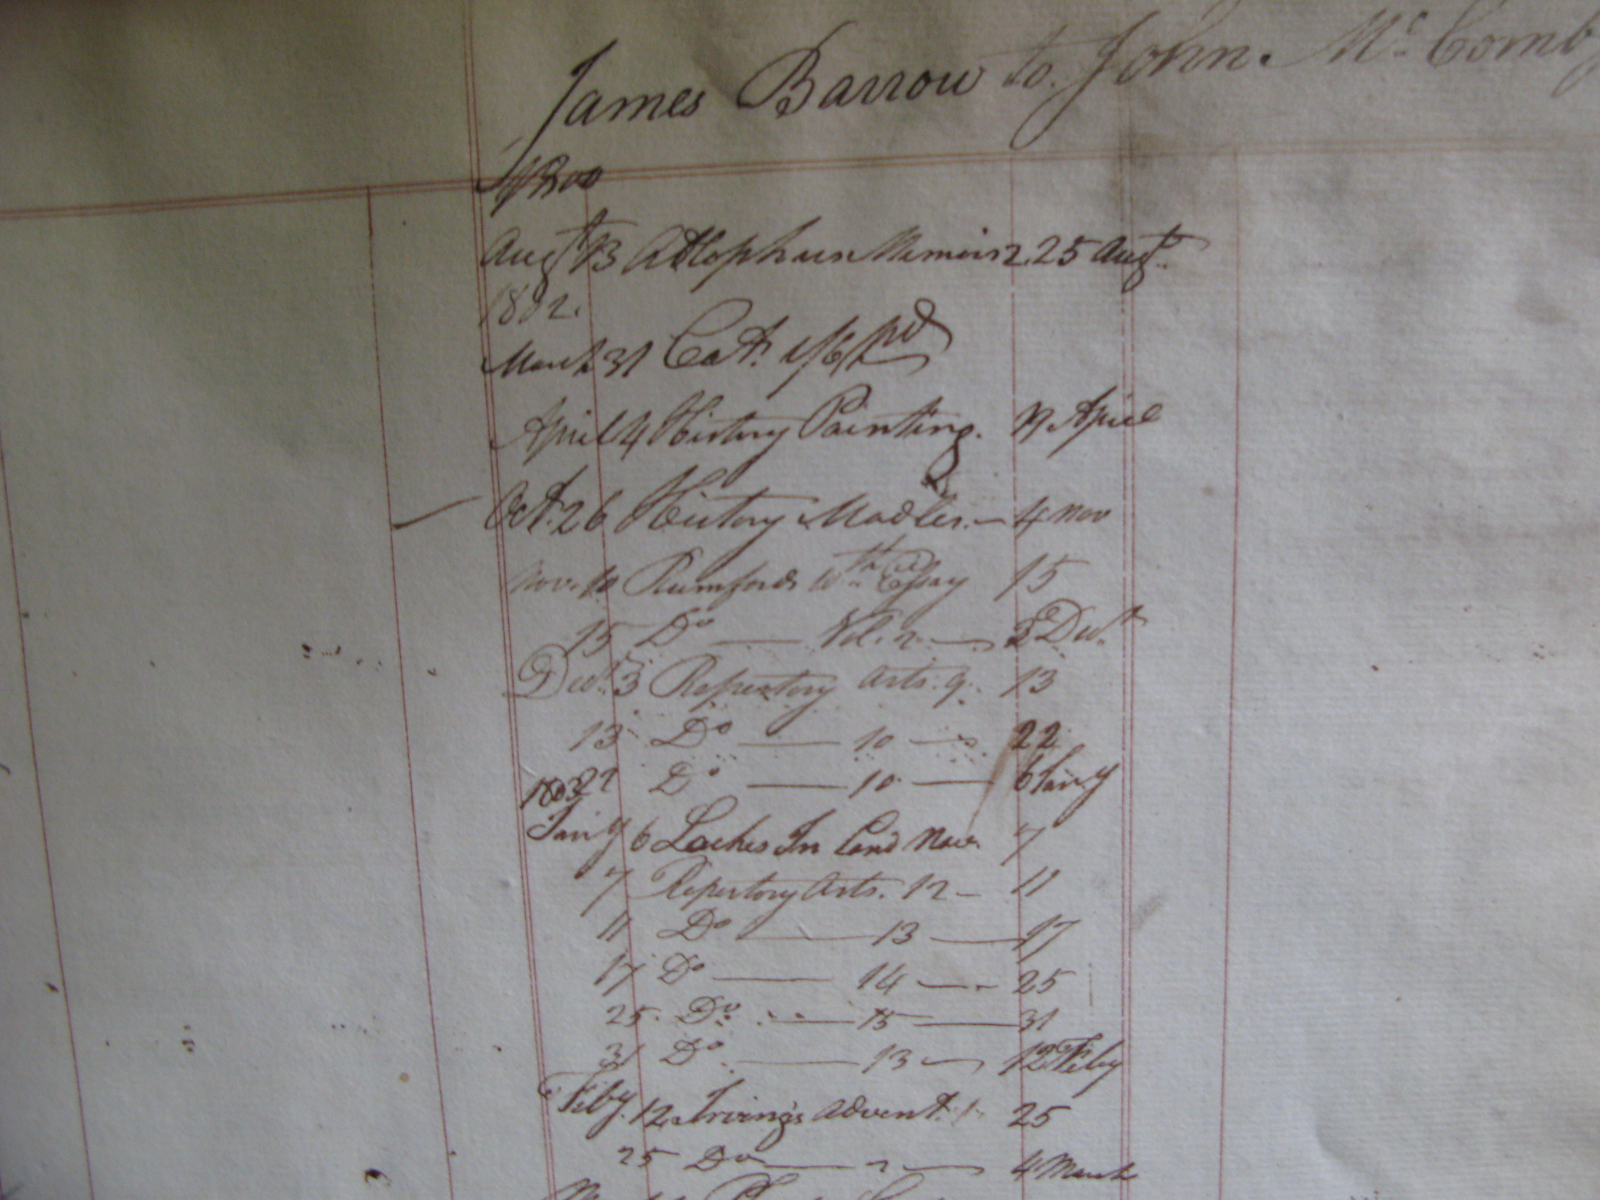 James Barrow to John McComb
1800
Augt 13 Memoirs 2 25 Augt
1802.
March 31 Cat. 1/6 pd
April 4 History Painting. 17 April
Oct. 26 History — 4 Nov
Nov. 10 Rumfords 10th Essay 15
15 Do — Vol. 2 — 3 Decr
Decr 3 Repertory Arts. 9. 13
13 Do — 10 — 22
1803 22 Do — 10 — 6 Jany
Jany 6 In land Nav. 7
7 Repertory Arts. 12 — 11
11 Do — 13 — 17
17 Do — 14 — 25
25 Do — 15 — 31
31 Do — 13 — 12 Feby
Feby. 12 Irving's Advent. 1 25
25 Do — 2 — 4 March